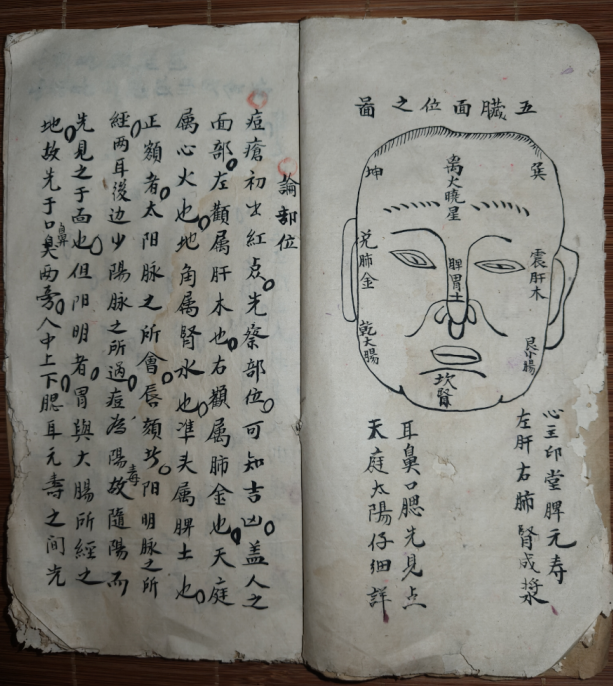 五臟面位之啚
巽
离火曉星
坤
震肝木
脾胃土
兑肺金
艮小腸
乾大腸
坎腎
心主印堂脾元寿
左肝右肺腎成漿
耳鼻口腮先見点
天庭太陽仔細詳
論部位
痘瘡初出紅点先察部位可知吉凶盖人之
面部左顴属肝木也右顴属肺金也天庭
属心火也地角属腎水也凖头属脾土也
正额者太阳脉之所會唇頦者阳明脉之所
經两耳後边少陽脉之所過痘為陽毒故隨陽而
先見之于面也但阳明者胃與大腸所經之
地故先于口鼻两旁人中上下腮耳元壽之間先